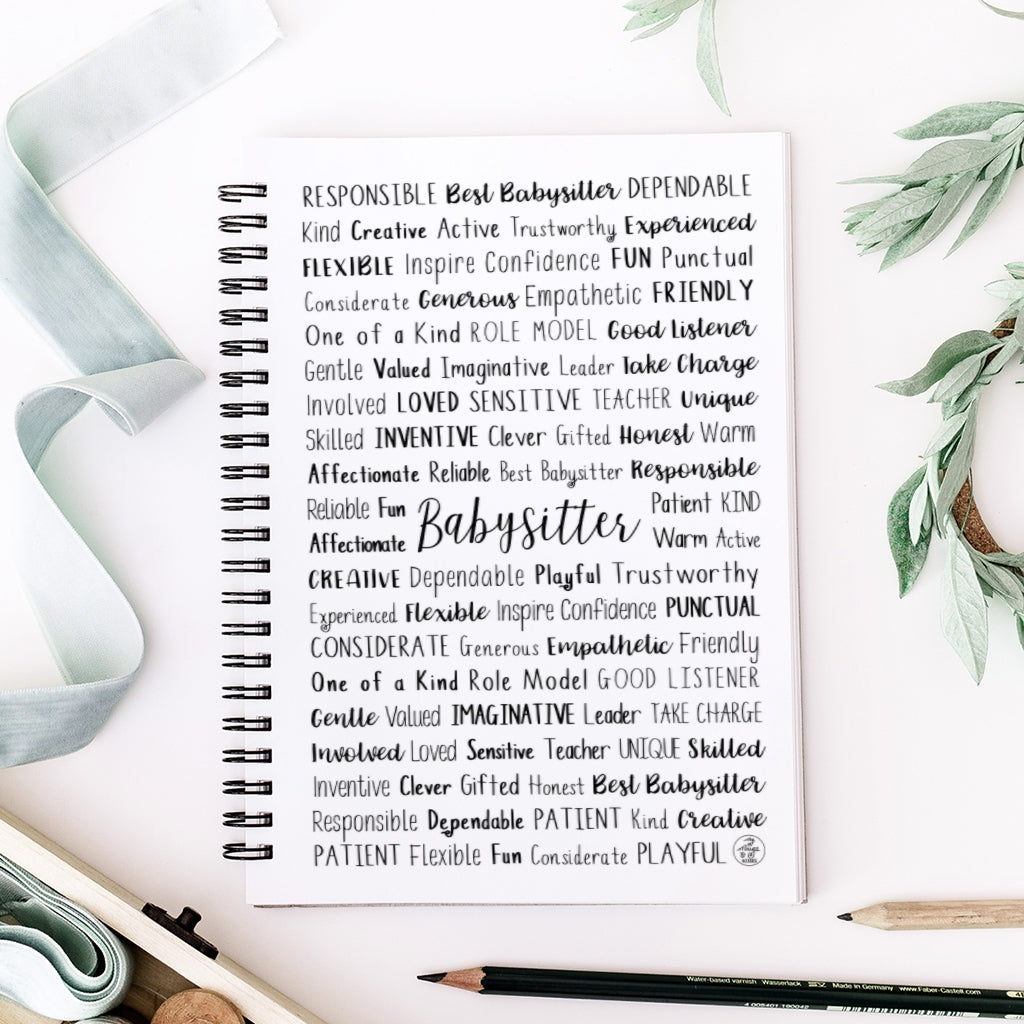 RESPONSIBLE Best Babysitter DEPENDABLE
Kind Creative Active Trustworthy Experienced
FLEXIBLE Inspire Confidence FUN Punctual
Considerate Generous Empathetic FRIENDLY
One of a Kind ROLE MODEL Good Listener
Gentle Valued Imaginative Leader Take Charge
Involved LOVED SENSITIVE TEACHER Unique
Skilled INVENTIVE Clever Gifted Honest Warm
Affectionate Reliable Best Babysitter Responsible
Reliable Fun
Affectionate
Babysitter
Patient KIND
Warm Active
CREATIVE Dependable Playful Trustworthy
Experienced Flexible Inspire Confidence PUNCTUAL
CONSIDERATE Generous Empathetic Friendly
One of a Kind Role Model GOOD LISTENER
Gentle Valued IMAGINATIVE Leader TAKE CHARGE
Involved Loved Sensitive Teacher UNIQUE Skilled
Inventive Clever Gifted Honest Best Babysitter
Responsible Dependable PATIENT Kind Creative
PATIENT Flexible Fun Considerate PLAYFUL
Water-based varnish Wasserlack Made in Germany www.Faber-Castell.com
4 005401 190042